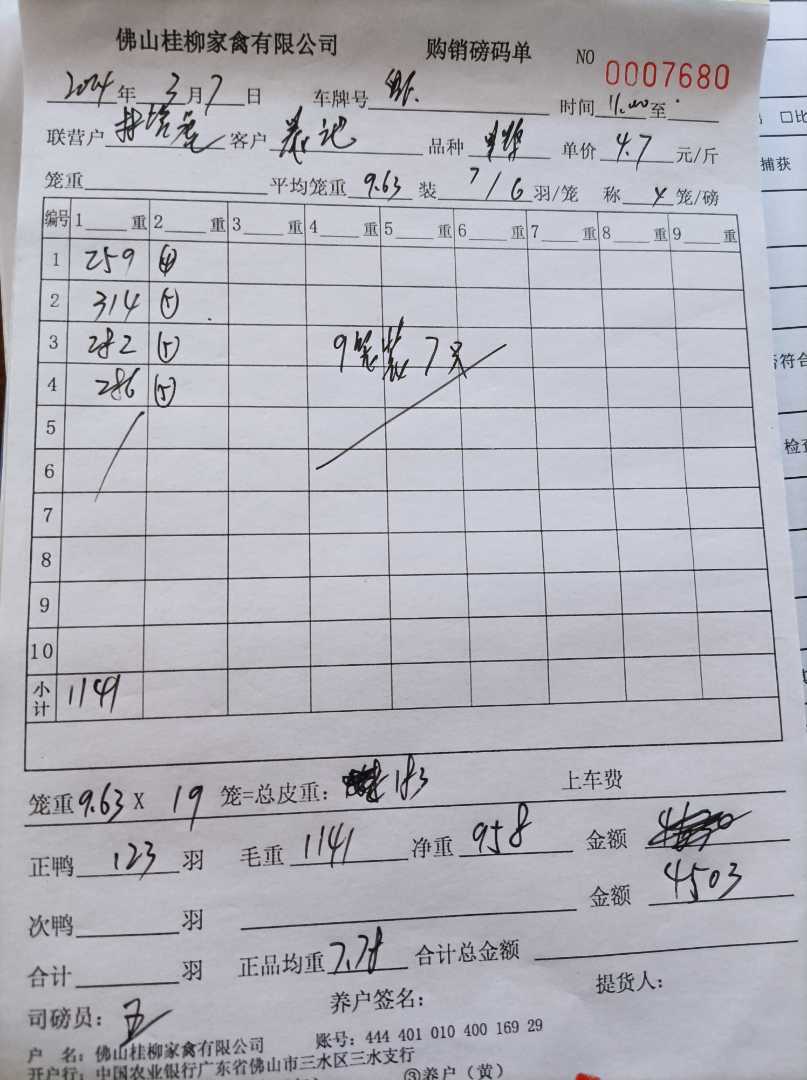 佛山桂柳家禽有限公司 购销磅码单 NO 0007680
2024年3月7日 车牌号 时间 11.00至
联营户 客户 记 品种 单价 4.7 元/斤
笼重 平均笼重 9.63 装 7/6 羽/笼 称 4 笼/磅
编号 1 重 2 重 3 重 4 重 5 重 6 重 7 重 8 重 9 重
1 259 ④
2 314 ⑤
3 282 ⑤ 9笼装7只
4 286 ⑤
5
6
7
8
9
10
小计 1141
笼重 9.63 X 19 笼=总皮重: 183 上车费
正鸭 123 羽 毛重 1141 净重 958 金额
金额 4503
次鸭 羽
合计 羽 正品均重 7.78 合计总金额
司磅员: 养户签名: 提货人:
户 名: 佛山桂柳家禽有限公司 账号: 444 401 010 400 169 29
开户行: 中国农业银行广东省佛山市三水区三水支行 ③养户(黄)
捕获
符合
检查